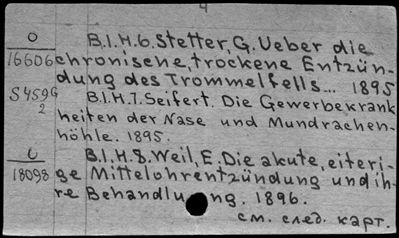 4
O B.I.H.6. Stetter, G. Ueber die
16606 chronische, trockene Entzün-
dung des Trommelfells... 1895
S459G B.I.H.7. Seifert. Die Gewerbekrank
2 heiten der Nase und Mundrachen-
höhle. 1895.
U B.I.H.8. Weil, E. Die akute, eiteri-
18098 ge Mittelohrentzündung und ih-
re Behandlung. 1896.
см. след. карт.